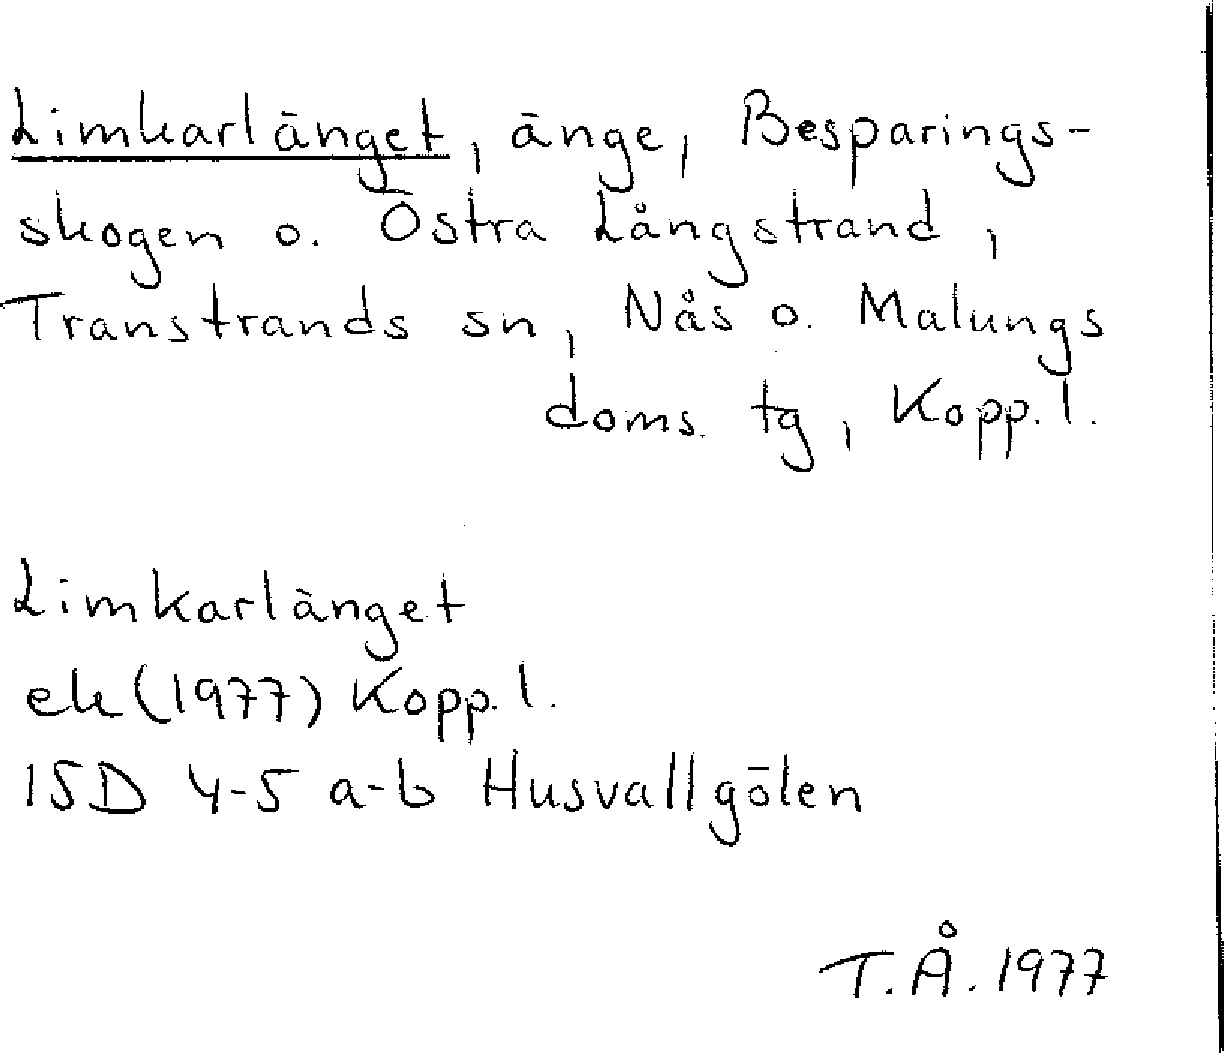 Limkarlänget, änge, Besparings-
skogen o. Östra Långstrand,
Transtrands sn, Nås o. Malungs
doms. tg, Kopp. l.
Limkarlänget
ek (1977) Kopp. l.
15D 4-5 a-b Husvallgölen
T.Å. 1977